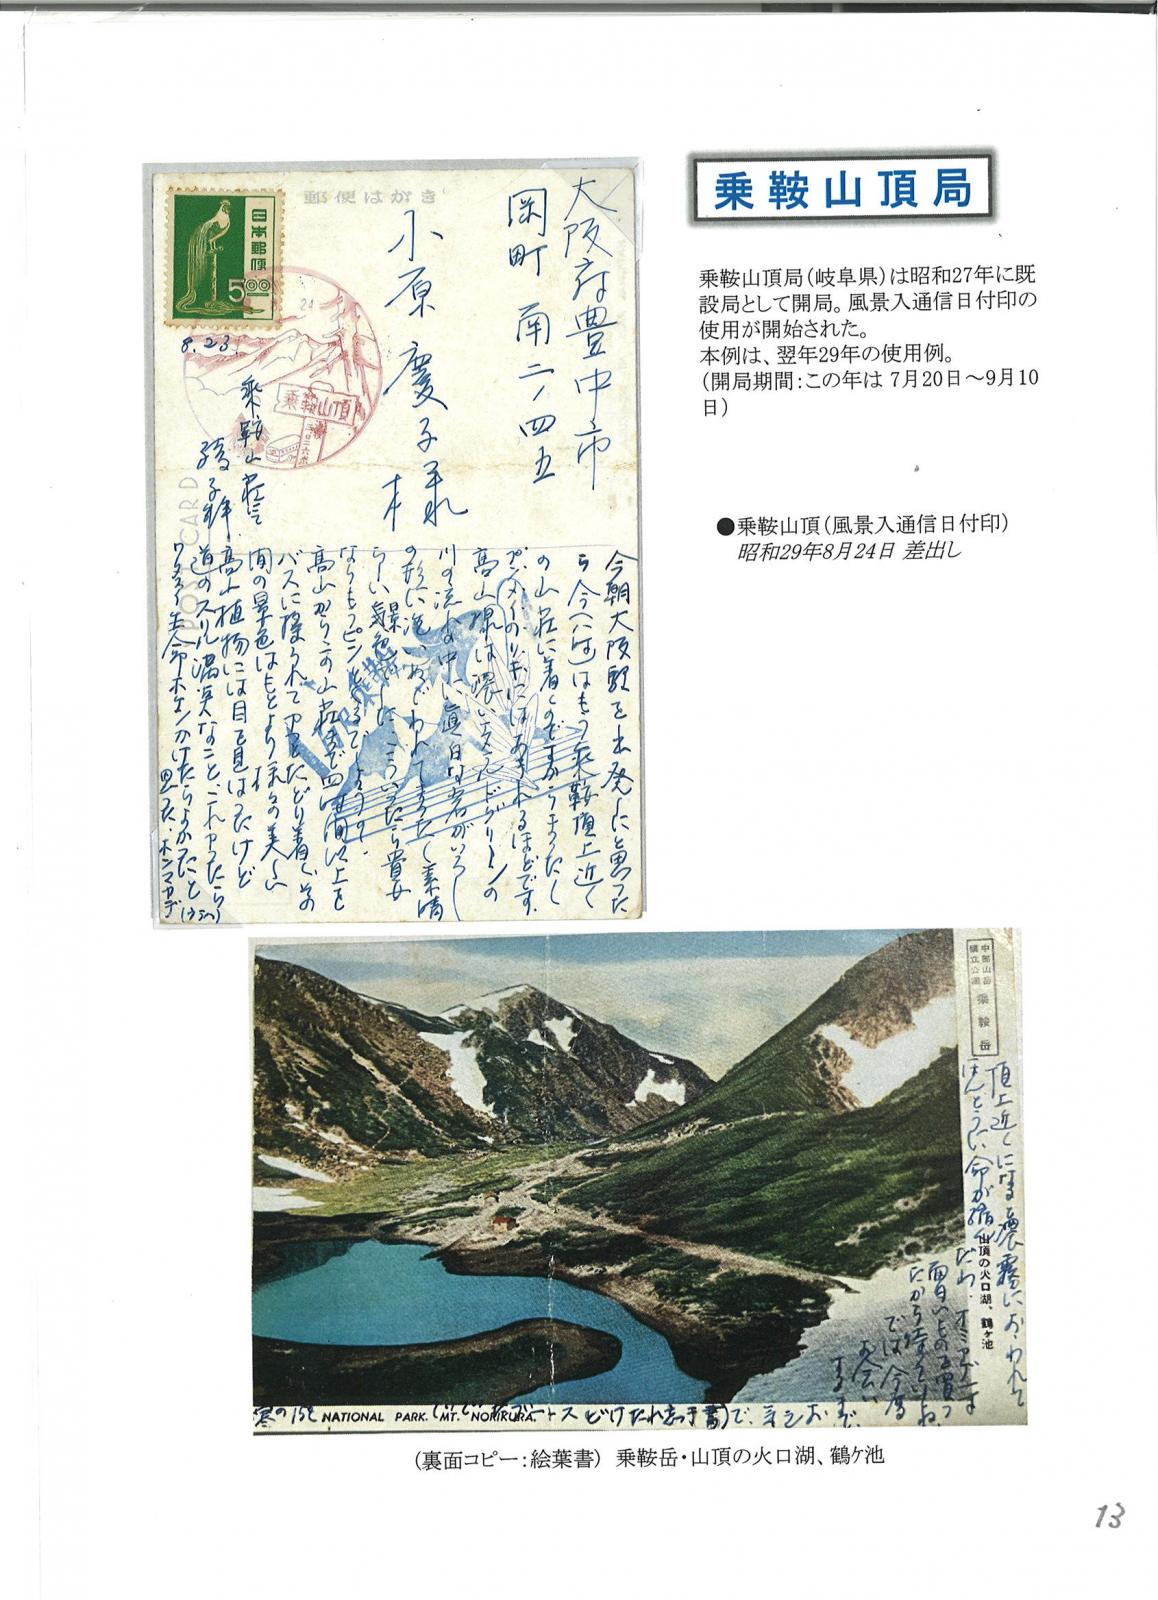 乗鞍山頂局
乗鞍山頂局(岐阜県)は昭和27年に既
設局として開局。風景入通信日付印の
使用が開始された。
本例は、翌年29年の使用例。
(開局期間:この年は 7月20日～9月10
日)
●乗鞍山頂(風景入通信日付印)
昭和29年8月24日 差出し
郵便はがき
日本郵便
5.00
24
乗鞍山頂
POST CARD
大阪府豊中市
岡町 南二ノ四五
小原 慶子様
8.23.
乗鞍山荘にて
今朝大阪駅を出発したと思った
ら今(八時)はもう乗鞍頂上近く
の山荘に着くのですからまったく
高山線は濃いエメラルドグリーンの
川の流れの中に真白な岩がいろいろ
の形に洗いあらわれてまったく素晴
らしい景色でした。こういったら貴女
ならもうピンと来るでしょう。
高山からこの山荘まで四時間以上も
バスに揺られてやっとたどり着く。その
間の景色はもとより様々の美しい
高山植物には目を見はったけど
道のスリル満点なこと、これやったら
生命ホケンかけたらよかったと
思った。ホンマカデ
中部山岳
国立公園
乗鞍岳
山頂の火口湖、鶴ヶ池
頂上近くになると濃霧におゝわれて
ほんとうに命が縮んだわ。オミアゲは
面白いもの買っ
たから待っていてね
では今度
お会い
するまで
NATIONAL PARK. MT. NORIKURA.
(裏面コピー:絵葉書) 乗鞍岳・山頂の火口湖、鶴ケ池
13